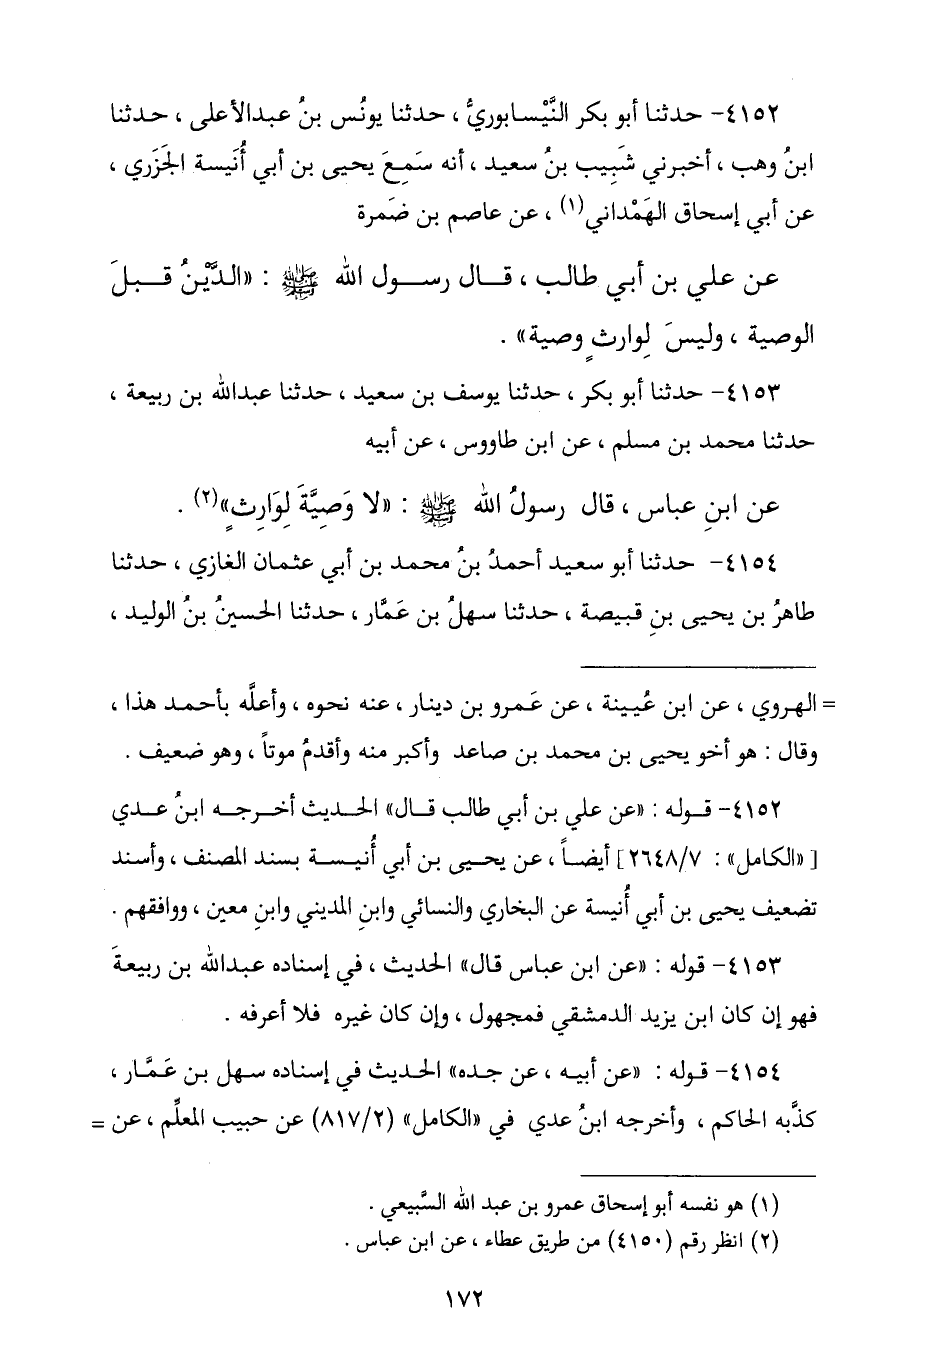 ٤١٥٢- حدثنا أبو بكر النَّيْسابوريُّ ، حدثنا يونُس بنُ عبدالأعلى ، حدثنا
ابنُ وهب ، أخبرني شَبِيب بنُ سعيد ، أنه سَمِعَ يحيى بن أبي أُنَيسة الجَزَري ،
عن أبي إسحاق الهَمْداني(١) ، عن عاصم بن ضَمرة
عن علي بن أبي طالب ، قال رسول الله ﷺ : «الدَّيْنُ قبلَ
الوصية ، وليسَ لِوارثٍ وصية» .
٤١٥٣- حدثنا أبو بكر ، حدثنا يوسف بن سعيد ، حدثنا عبدالله بن ربيعة ،
حدثنا محمد بن مسلم ، عن ابن طاووس ، عن أبيه
عن ابنِ عباس ، قال رسولُ الله ﷺ : «لا وَصِيَّةَ لِوَارِثٍ»(٢) .
٤١٥٤- حدثنا أبو سعيد أحمدُ بنُ محمد بن أبي عثمان الغازي ، حدثنا
طاهرُ بن يحيى بنِ قبيصة ، حدثنا سهلُ بن عَمَّار ، حدثنا الحسينُ بنُ الوليد ،
= الهروي ، عن ابن عُيينة ، عن عَمرو بن دينار ، عنه نحوه ، وأعلَّه بأحمد هذا ،
وقال : هو أخو يحيى بن محمد بن صاعد وأكبر منه وأقدمُ موتاً ، وهو ضعيف .
٤١٥٢- قوله : «عن علي بن أبي طالب قال» الحديث أخرجه ابنُ عدي
[ «الكامل» : ٢٦٤٨/٧] أيضاً ، عن يحيى بن أبي أُنيسة بسند المصنف ، وأسند
تضعيف يحيى بن أبي أُنيسة عن البخاري والنسائي وابنِ المديني وابنِ معين ، ووافقهم .
٤١٥٣- قوله : «عن ابن عباس قال» الحديث ، في إسناده عبدالله بن ربيعةَ
فهو إن كان ابن يزيد الدمشقي فمجهول ، وإن كان غيره فلا أعرفه .
٤١٥٤- قوله : «عن أبيه ، عن جده» الحديث في إسناده سهل بن عَمَّار ،
كذَّبه الحاكم ، وأخرجه ابنُ عدي في «الكامل» (٨١٧/٢) عن حبيب المعلِّم ، عن =
(١) هو نفسه أبو إسحاق عمرو بن عبد الله السَّبيعي .
(٢) انظر رقم (٤١٥٠) من طريق عطاء ، عن ابن عباس .
١٧٢